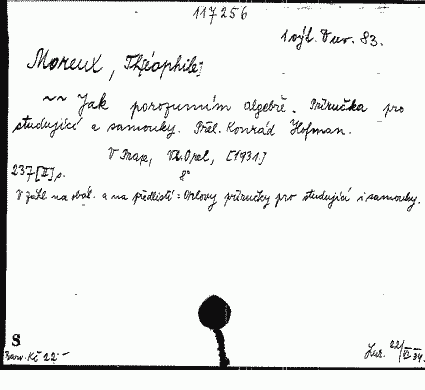 117256
1 výt. Duv. 83.
Moreux, Théophile]
~~ Jak porozumím algebře. Příručka pro
studující a samouky. Přel. Konrád Hofman.
V Praze, Vl. Orel, [1931]
237 [II] s. 8°
V záhl. na obál. a na předlistí: Orlovy příručky pro studující i samouky.
S
Kč 22 –
22/ 34.